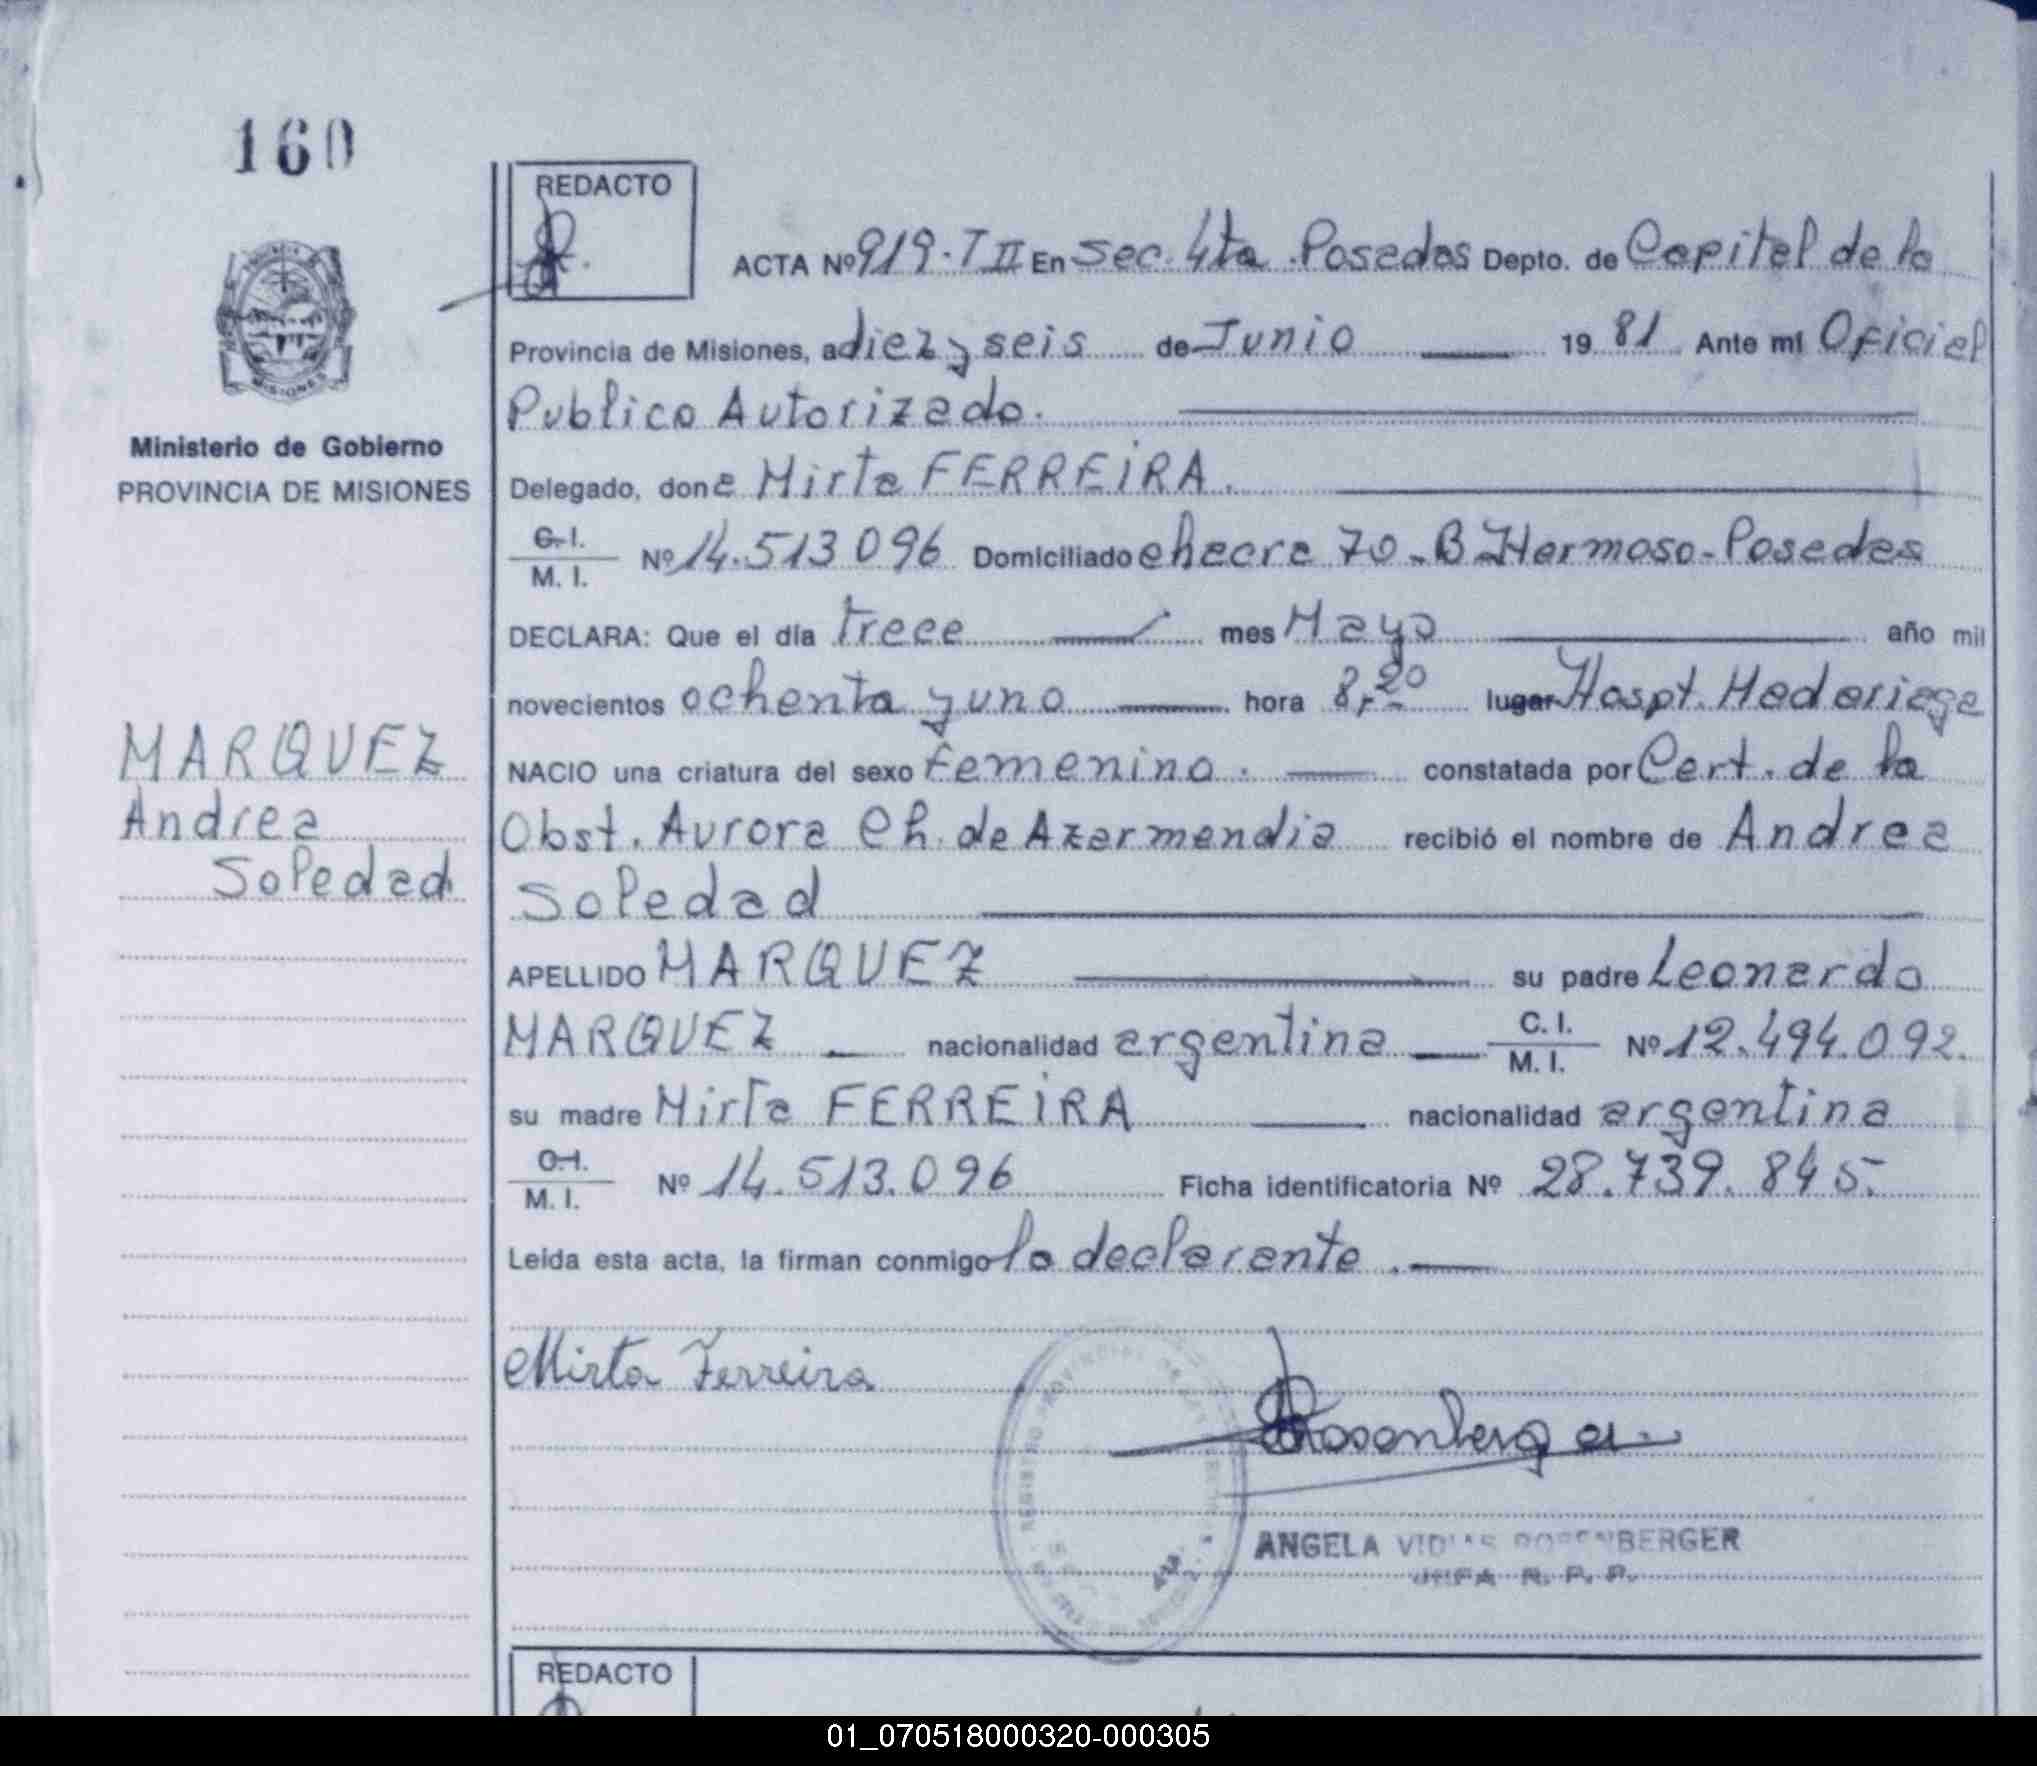 160
REDACTO
ACTA Nº 919. T II En Sec. 4ta. Posadas Depto. de Capital de la
Provincia de Misiones, a diez y seis de Junio 19 81 Ante mi Oficial
Publico Autorizado.
Ministerio de Gobierno
PROVINCIA DE MISIONES
Delegado, don a Mirta FERREIRA.
C.I. / M. I. Nº 14.513 096 Domiciliado chacra 70 - B Hermoso - Posadas
DECLARA: Que el día trece mes Mayo año mil
novecientos ochenta y uno hora 8,20 lugar Hospt. Madariaga
MARQUEZ
Andrea
Soledad
NACIO una criatura del sexo femenino. constatada por Cert. de la
Obst. Aurora Ch. de Azarmendia recibió el nombre de Andrea
Soledad
APELLIDO MARQUEZ su padre Leonardo
MARQUEZ nacionalidad argentina C. I. / M. I. Nº 12.494.092.
su madre Mirta FERREIRA nacionalidad argentina
C.I. / M. I. Nº 14.513.096 Ficha identificatoria Nº 28.739.845.-
Leida esta acta, la firman conmigo la declarante.
Mirta Ferreira
Rosenberger
ANGELA ROSENBERGER
JEFA R. P. P.
REDACTO
01_070518000320-000305